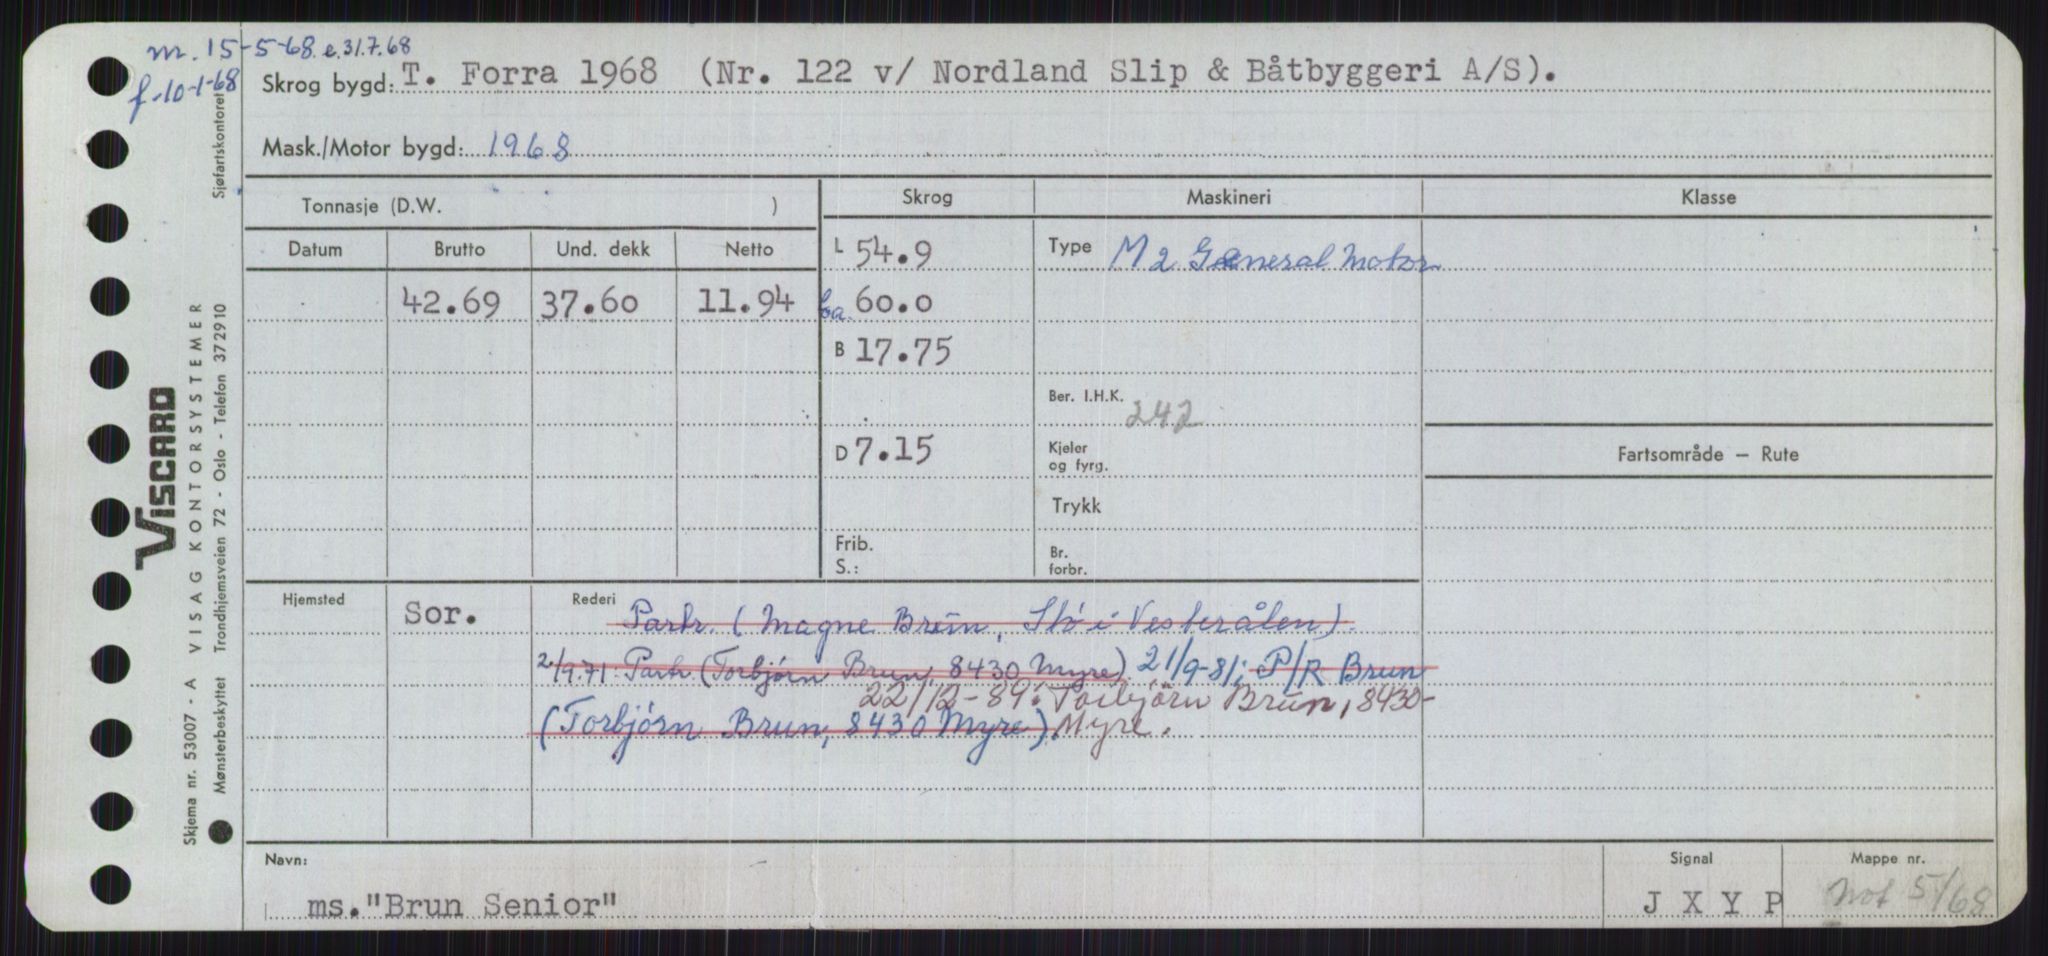 m. 15-5-68. e.31.7.68
f.10-1-68
Skrog bygd: T. Forra 1968 (Nr. 122 v/ Nordland Slip & Båtbyggeri A/S).
Mask./Motor bygd: 1968
Tonnasje (D.W. )
Skrog
Maskineri
Klasse
Datum
Brutto
Und. dekk
Netto
L 54.9
Type M 2 General Motor
42.69
37.60
11.94
Loa. 60.0
B 17.75
Ber. I.H.K. 242
D 7.15
Kjeler
og fyrg.
Fartsområde – Rute
Trykk
Frib.
S.:
Br.
forbr.
Hjemsted
Sor.
Rederi
Partr. (Magne Brun, Stø i Vesterålen).
2/9.71: Partr. (Torbjørn Brun, 8430 Myre). 21/9-81: P/R Brun
22/12-89: Torbjörn Brun, 8430-
(Torbjørn Brun, 8430 Myre). Myre.
Navn:
ms."Brun Senior"
Signal
J X Y P
Mappe nr.
Not 5/68
Viscard
Skjema nr. 53007 - A VISAG KONTORSYSTEMER
Mønsterbeskyttet Trondhjemsveien 72 - Oslo - Telefon 372910
Sjøfartskontoret